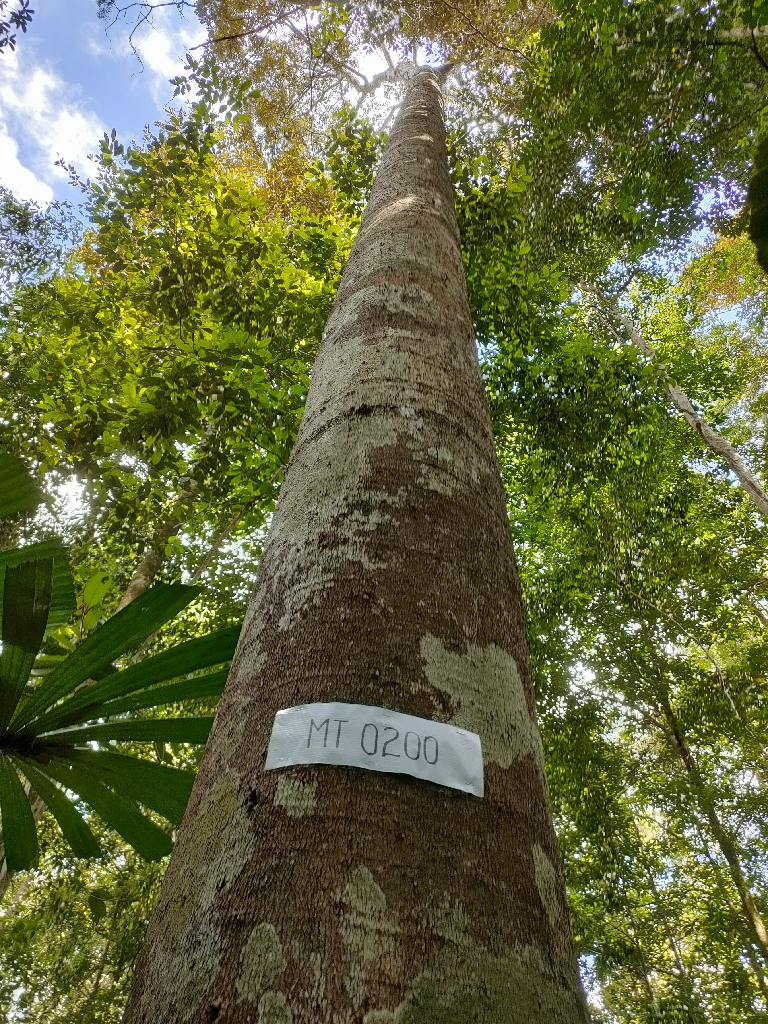 MT 0200